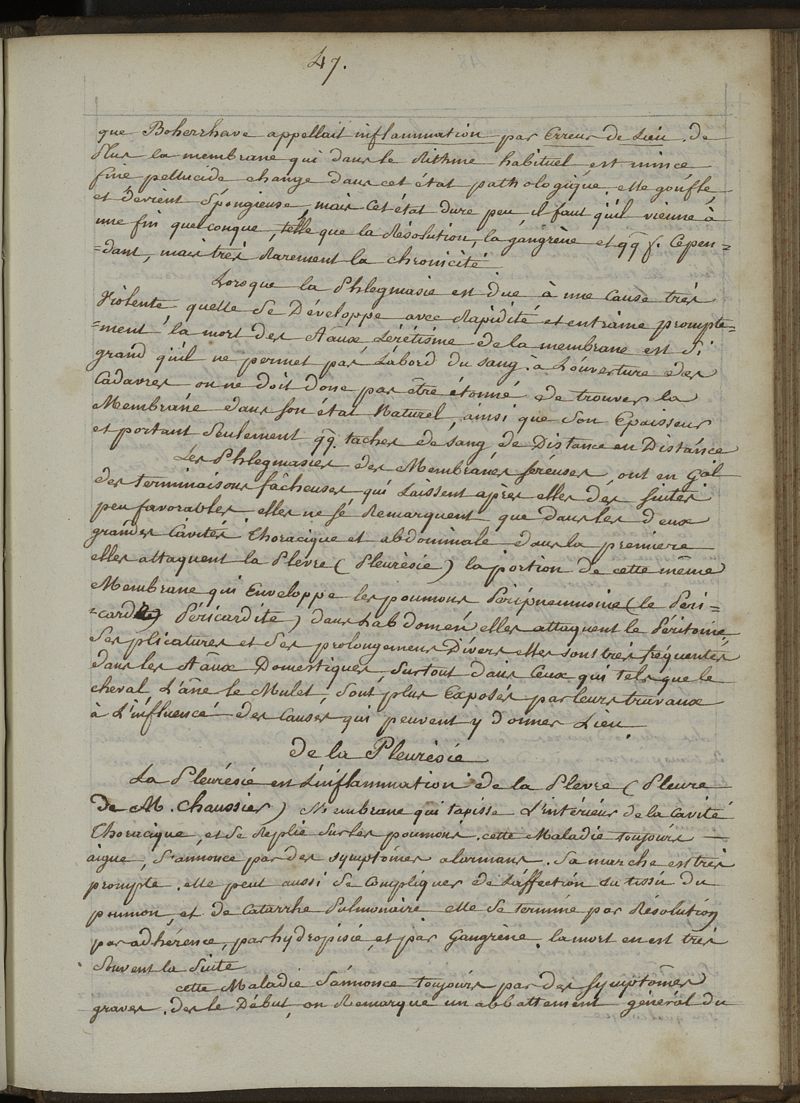 47.
que Boherrhave appellait inflammation par Erreur de Lieu. de
Plus la membrane qui dans le Rithme habituel est mince
fine pellucide change dans cet état pathologique, elle gonfle,
et devient Spongieuse, mais Cet état dure peu, il faut qu'il vienne à
une fin quelconque, telle que la Résolution, la gangrène et qq f. Cepen=
=dant, mais très Rarement la chronicité.
Lorsque la Phlegmasie est due à une Cause très
Violente quelle se Développe avec Rapidité et entraine prompte=
=ment la mort des Aâux Lérétisme de la membrane est Si
grand qu'il ne permet pas L'abord du Sang. à L'ouverture des
Cadavres on ne doit donc pas être étonné de trouver la
Membrane dans son état Naturel, ainsi que Son Epaisseur
et portant Seulement qq. taches de Sang de Distance en Distance
Les Phlegmasies des Membranes Séreuses, ont en Gâl
des terminaisons fâcheuses qui Laissent après elles des Suites
peu favorables elles ne se Remarquent que dans les deux
grandes Cavités Thoracique et abdominale dans la premiere
elles attaquent la Plèvre (Pleurésie) la portion de cette même
Membrane qui Enveloppe les poumons Péripneumoine (le Peri=
=carde) Péricardite, dans L'abdomen elles attaquent le Péritoine
Ses plicatures et Ses prolongemens Divers elles sont très fréquentes
dans les Aâux Domestiques, Surtout dans Ceux qui tels que le
cheval, L'âne le Mulet, Sont plus Exposés par leurs travaux
à L'influence des Causes qui peuvent y donner Lieu.
de la Pleurésie
La Pleurésie est L'inflammation de la Plèvre (Pleure
de M. Chaussier) Membrane qui tapisse L'intérieur de la Cavité
Thoracique, et Se Replie Sur les poumons. cette Maladie toujours
aigue, S'annonce par des symptômes alarmans. Sa marche est très
prompte. elle peut aussi Se Compliquer de L'affection du tissu du
poumon, et de Catarrhe Pulmonaire elle Se termine par Résolution
par adhérence, par hydropisie, et par Gangrène. la mort en est très
Souvent la Suite
cette Maladie S'annonce toujours par des Symptômes
graves. dès le Début, on Remarque un abbattement général du